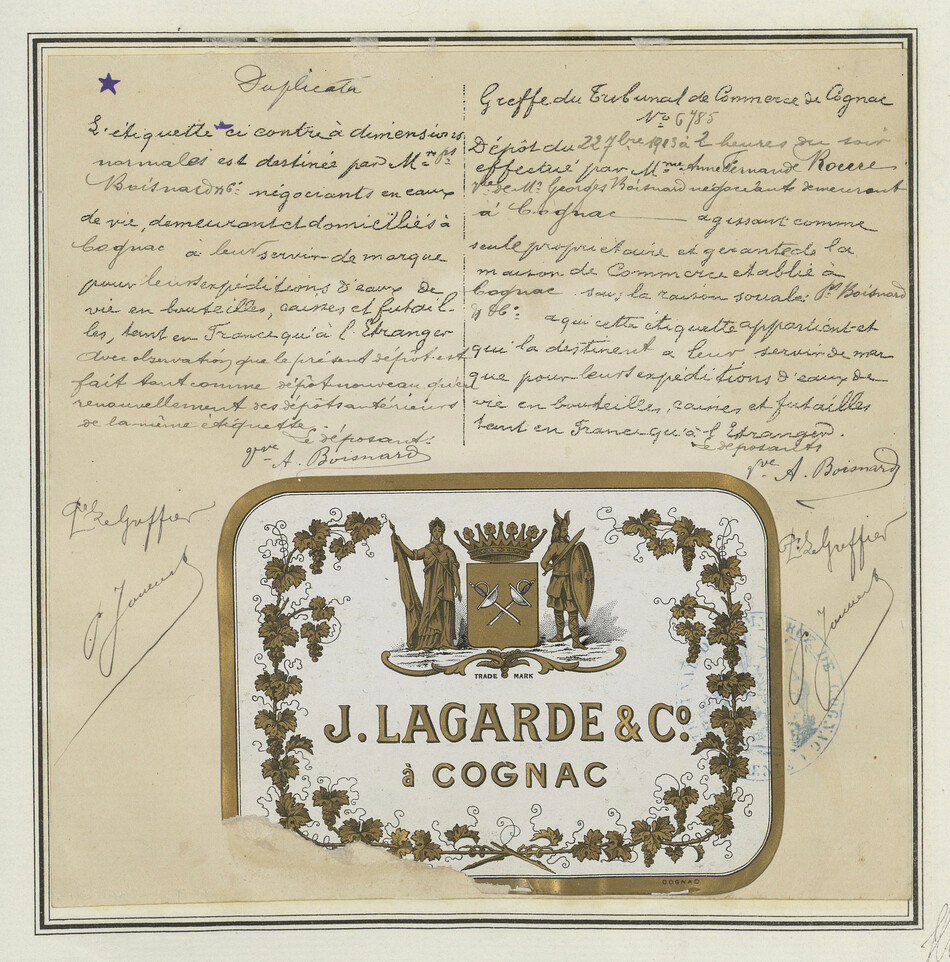 Duplicata
L'étiquette ci contre à dimensions
normales est destinée par Mrs Ps
Boisnard & Cie négociants en eaux
de vie, demeurant et domiciliés à
Cognac à leur servir de marque
pour leurs expéditions d'eaux de
vie en bouteilles, caisses et futail-
les, tant en France qu'à l'Étranger
avec observation, que le présent dépôt est
fait tant comme dépôt nouveau qu'en
renouvellement des dépôts antérieurs
de la même étiquette.
Le déposant:
Vve A. Boisnard
Pr Le Greffier
Greffe du Tribunal de Commerce de Cognac
No 6785
Dépôt du 22 7bre 1903 à 2 heures du soir
effectué par Mme Anne Fernande
Vve de Mr Georges Boisnard négociante demeurant
à Cognac agissant comme
seule propriétaire et gérante de la
maison de Commerce établie à
Cognac sous la raison sociale: Ps Boisnard
& Cie à qui cette étiquette appartient et
qui la destinent à leur servir de mar
que pour leurs expéditions d'eaux de
vie en bouteilles, caisses et futailles
tant en France qu'à l'Étranger.
Le déposants
Vve A. Boisnard
Pr Le Greffier
TRADE MARK
J. LAGARDE & Co.
à COGNAC
COGNAC